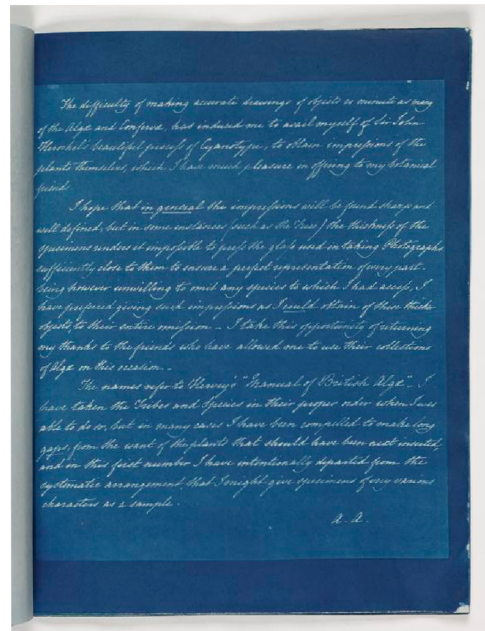 The difficulty of making accurate drawings of objects as minute as many
of the Algæ and Confervæ, has induced me to avail myself of Sir John
Herschel's beautiful process of Cyanotype, to obtain impressions of the
plants themselves, which I have much pleasure in offering to my botanical
friends.
I hope that in general the impressions will be found sharp and
well defined, but in some instances (such as the Fuci) the thickness of the
specimens renders it impossible to press the glass used in taking Photographs
sufficiently close to them to ensure a perfect representation of every part.
Being however unwilling to omit any species to which I had access, I
have preferred giving such impressions as I could obtain of these thicker
objects, to their entire omission _ I take this opportunity of returning
my thanks to the friends who have allowed me to use their collections
of Algæ on this occasion. _
The names refer to Harvey's "Manual of British Algæ". _ I
have taken the Tribes and Species in their proper order when I was
able to do so, but in many cases I have been compelled to make long
gaps, from the want of the plants that should have been next inserted,
and in this first number I have intentionally departed from the
systematic arrangement, that I might give specimens of very various
characters as a sample.
A. A.